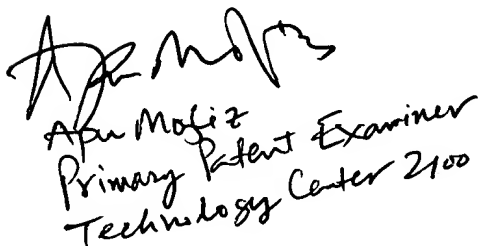 Apu Mofiz
Apu Mofiz
Primary Patent Examiner
Technology Center 2100